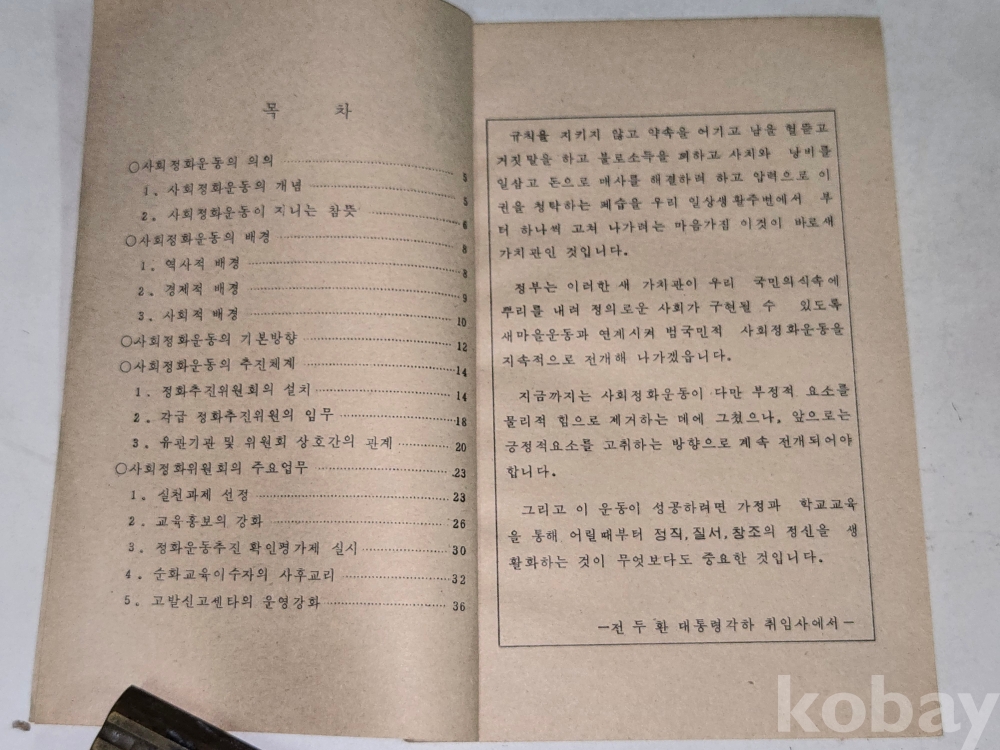 목 차
○사회정화운동의 의의 5
1. 사회정화운동의 개념 5
2. 사회정화운동이 지니는 참뜻 6
○사회정화운동의 배경 8
1. 역사적 배경 8
2. 경제적 배경 9
3. 사회적 배경 10
○사회정화운동의 기본방향 12
○사회정화운동의 추진체계 14
1. 정화추진위원회의 설치 14
2. 각급 정화추진위원의 임무 18
3. 유관기관 및 위원회 상호간의 관계 20
○사회정화위원회의 주요업무 23
1. 실천과제 선정 23
2. 교육홍보의 강화 26
3. 정화운동추진 확인평가제 실시 30
4. 순화교육이수자의 사후교리 32
5. 고발신고센타의 운영강화 36
규칙을 지키지 않고 약속을 어기고 남을 헐뜯고
거짓말을 하고 불로소득을 꾀하고 사치와 낭비를
일삼고 돈으로 매사를 해결하려 하고 압력으로 이
권을 청탁하는 폐습을 우리 일상생활주변에서 부
터 하나씩 고쳐 나가려는 마음가짐 이것이 바로새
가치관인 것입니다.
정부는 이러한 새 가치관이 우리 국민의식속에
뿌리를 내려 정의로운 사회가 구현될 수 있도록
새마을운동과 연계시켜 범국민적 사회정화운동을
지속적으로 전개해 나가겠읍니다.
지금까지는 사회정화운동이 다만 부정적 요소를
물리적 힘으로 제거하는 데에 그쳤으나, 앞으로는
긍정적요소를 고취하는 방향으로 계속 전개되어야
합니다.
그리고 이 운동이 성공하려면 가정과 학교교육
을 통해 어릴때부터 정직, 질서, 창조의 정신을 생
활화하는 것이 무엇보다도 중요한 것입니다.
—전 두 환 대통령각하 취임사에서—
kobay